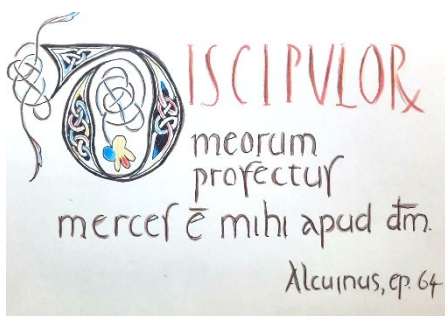 DISCIPVLORꝝ
meorum
profectuſ
merceſ ē mihi apud dm̄.
Alcuinus, ep. 64